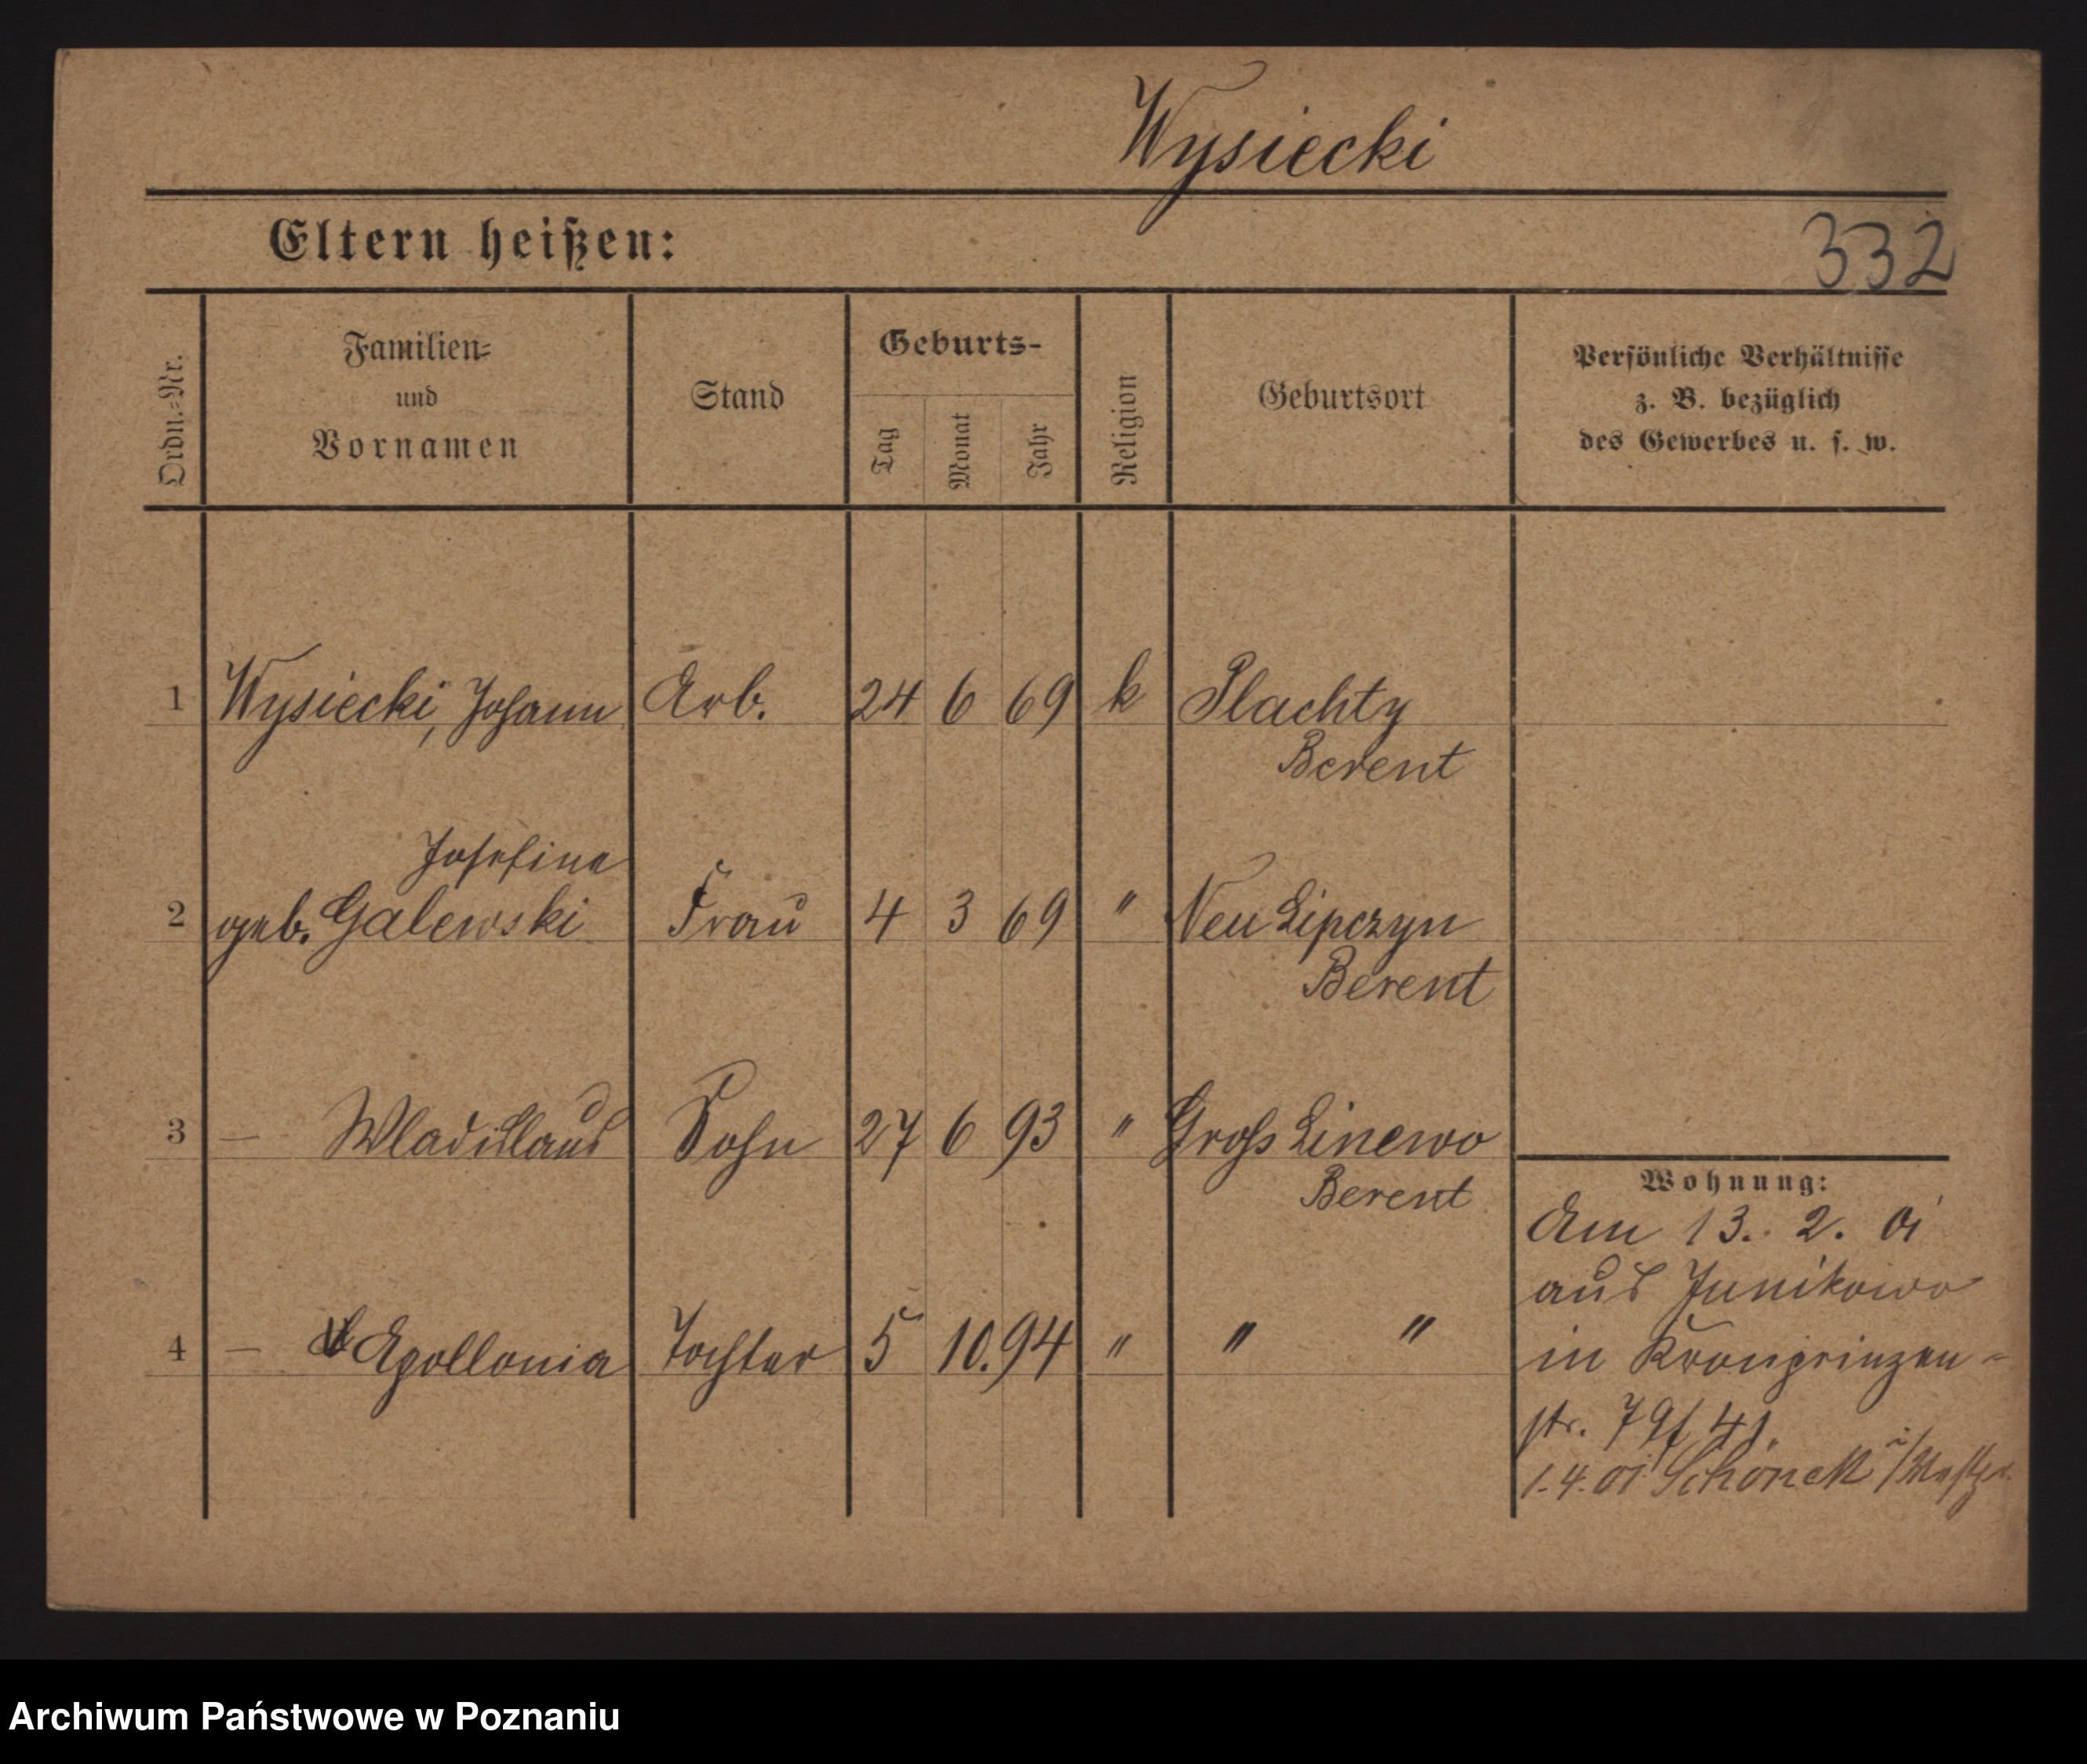 Wysiecki
Eltern heißen:
332
Ordn.=Nr.
Familien=
und
Vornamen
Stand
Geburts-
Tag
Monat
Jahr
Religion
Geburtsort
Persönliche Verhältnisse
z. B. bezüglich
des Gewerbes u. s. w.
1 Wysiecki, Johann Arb. 24 6 69 k Plachty
Berent
Josefine
2 geb. Galewski Frau 4 3 69 " Neu Lipczyn
Berent
3 — Wladislaus Sohn 27 6 93 " Groß Linewo
Berent
4 — Apollonia Tochter 5 10. 94 " " "
Wohnung:
Am 13. 2. 01
aus Junikowo
in Kronprinzen-
str. 79
1. 4. 01 Schöneck i/Westpr.